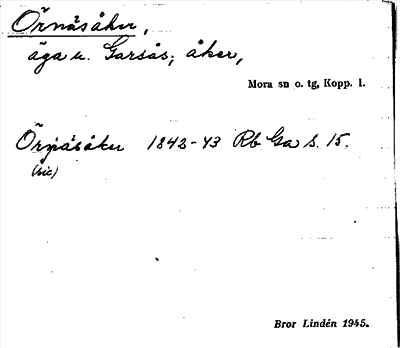 Örnäsåker,
äga u. Garsås; åker,
Mora sn o. tg, Kopp. l.
Örjnäsåker 1842-43 Rb Ga s. 15.
(sic)
Bror Lindén 1945.